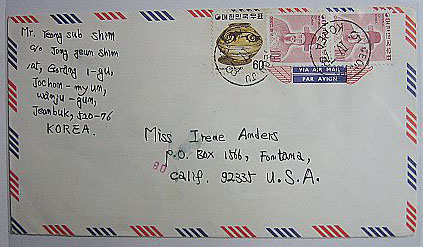 Mr. Jeong Sub Shim
c/o Jong geun Shim
1-gu,
Jochon-myun,
Wanju-gun,
Jeonbuk, 520-76
KOREA.
대한민국우표
60
대한민국우표
VIA AIR MAIL
PAR AVION
Miss Irene Anders
P.O. Box 1566, Fontana,
Calif. 92335 U.S.A.